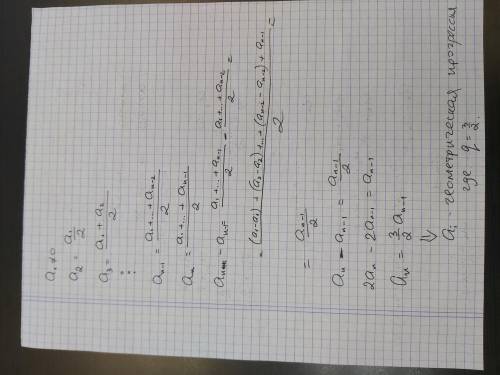 a₁ ≠ 0
a₂ = a₁/2
a₃ = (a₁ + a₂)/2
⋮
aₙ₋₁ = (a₁ + ... + aₙ₋₂)/2
aₙ = (a₁ + ... + aₙ₋₁)/2
aₙ - aₙ₋₁ = (a₁ + ... + aₙ₋₁)/2 - (a₁ + ... + aₙ₋₂)/2 =
= ((a₁ - a₁) + (a₂ - a₂) + ... + (aₙ₋₂ - aₙ₋₂) + aₙ₋₁)/2 =
= aₙ₋₁/2
aₙ - aₙ₋₁ = aₙ₋₁/2
2aₙ - 2aₙ₋₁ = aₙ₋₁
aₙ = 3/2 aₙ₋₁
⇓
aᵢ - геометрическая прогрессия
где q = 3/2.